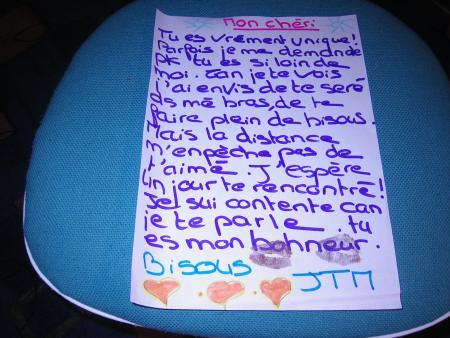 mon chéri
Tu es vrément unique!
Parfois je me demande
Pk tu es si loin de
moi. can je te vois
J'ai envis de te seré
ds mé bras, de te
faire plein de bisous.
Mais la distance
m'enpèche pas de
t'aimé. J'espère
un jour te rencontré!
Je sui contente can
je te parle. tu
es mon bohneur.
Bisous
JTM